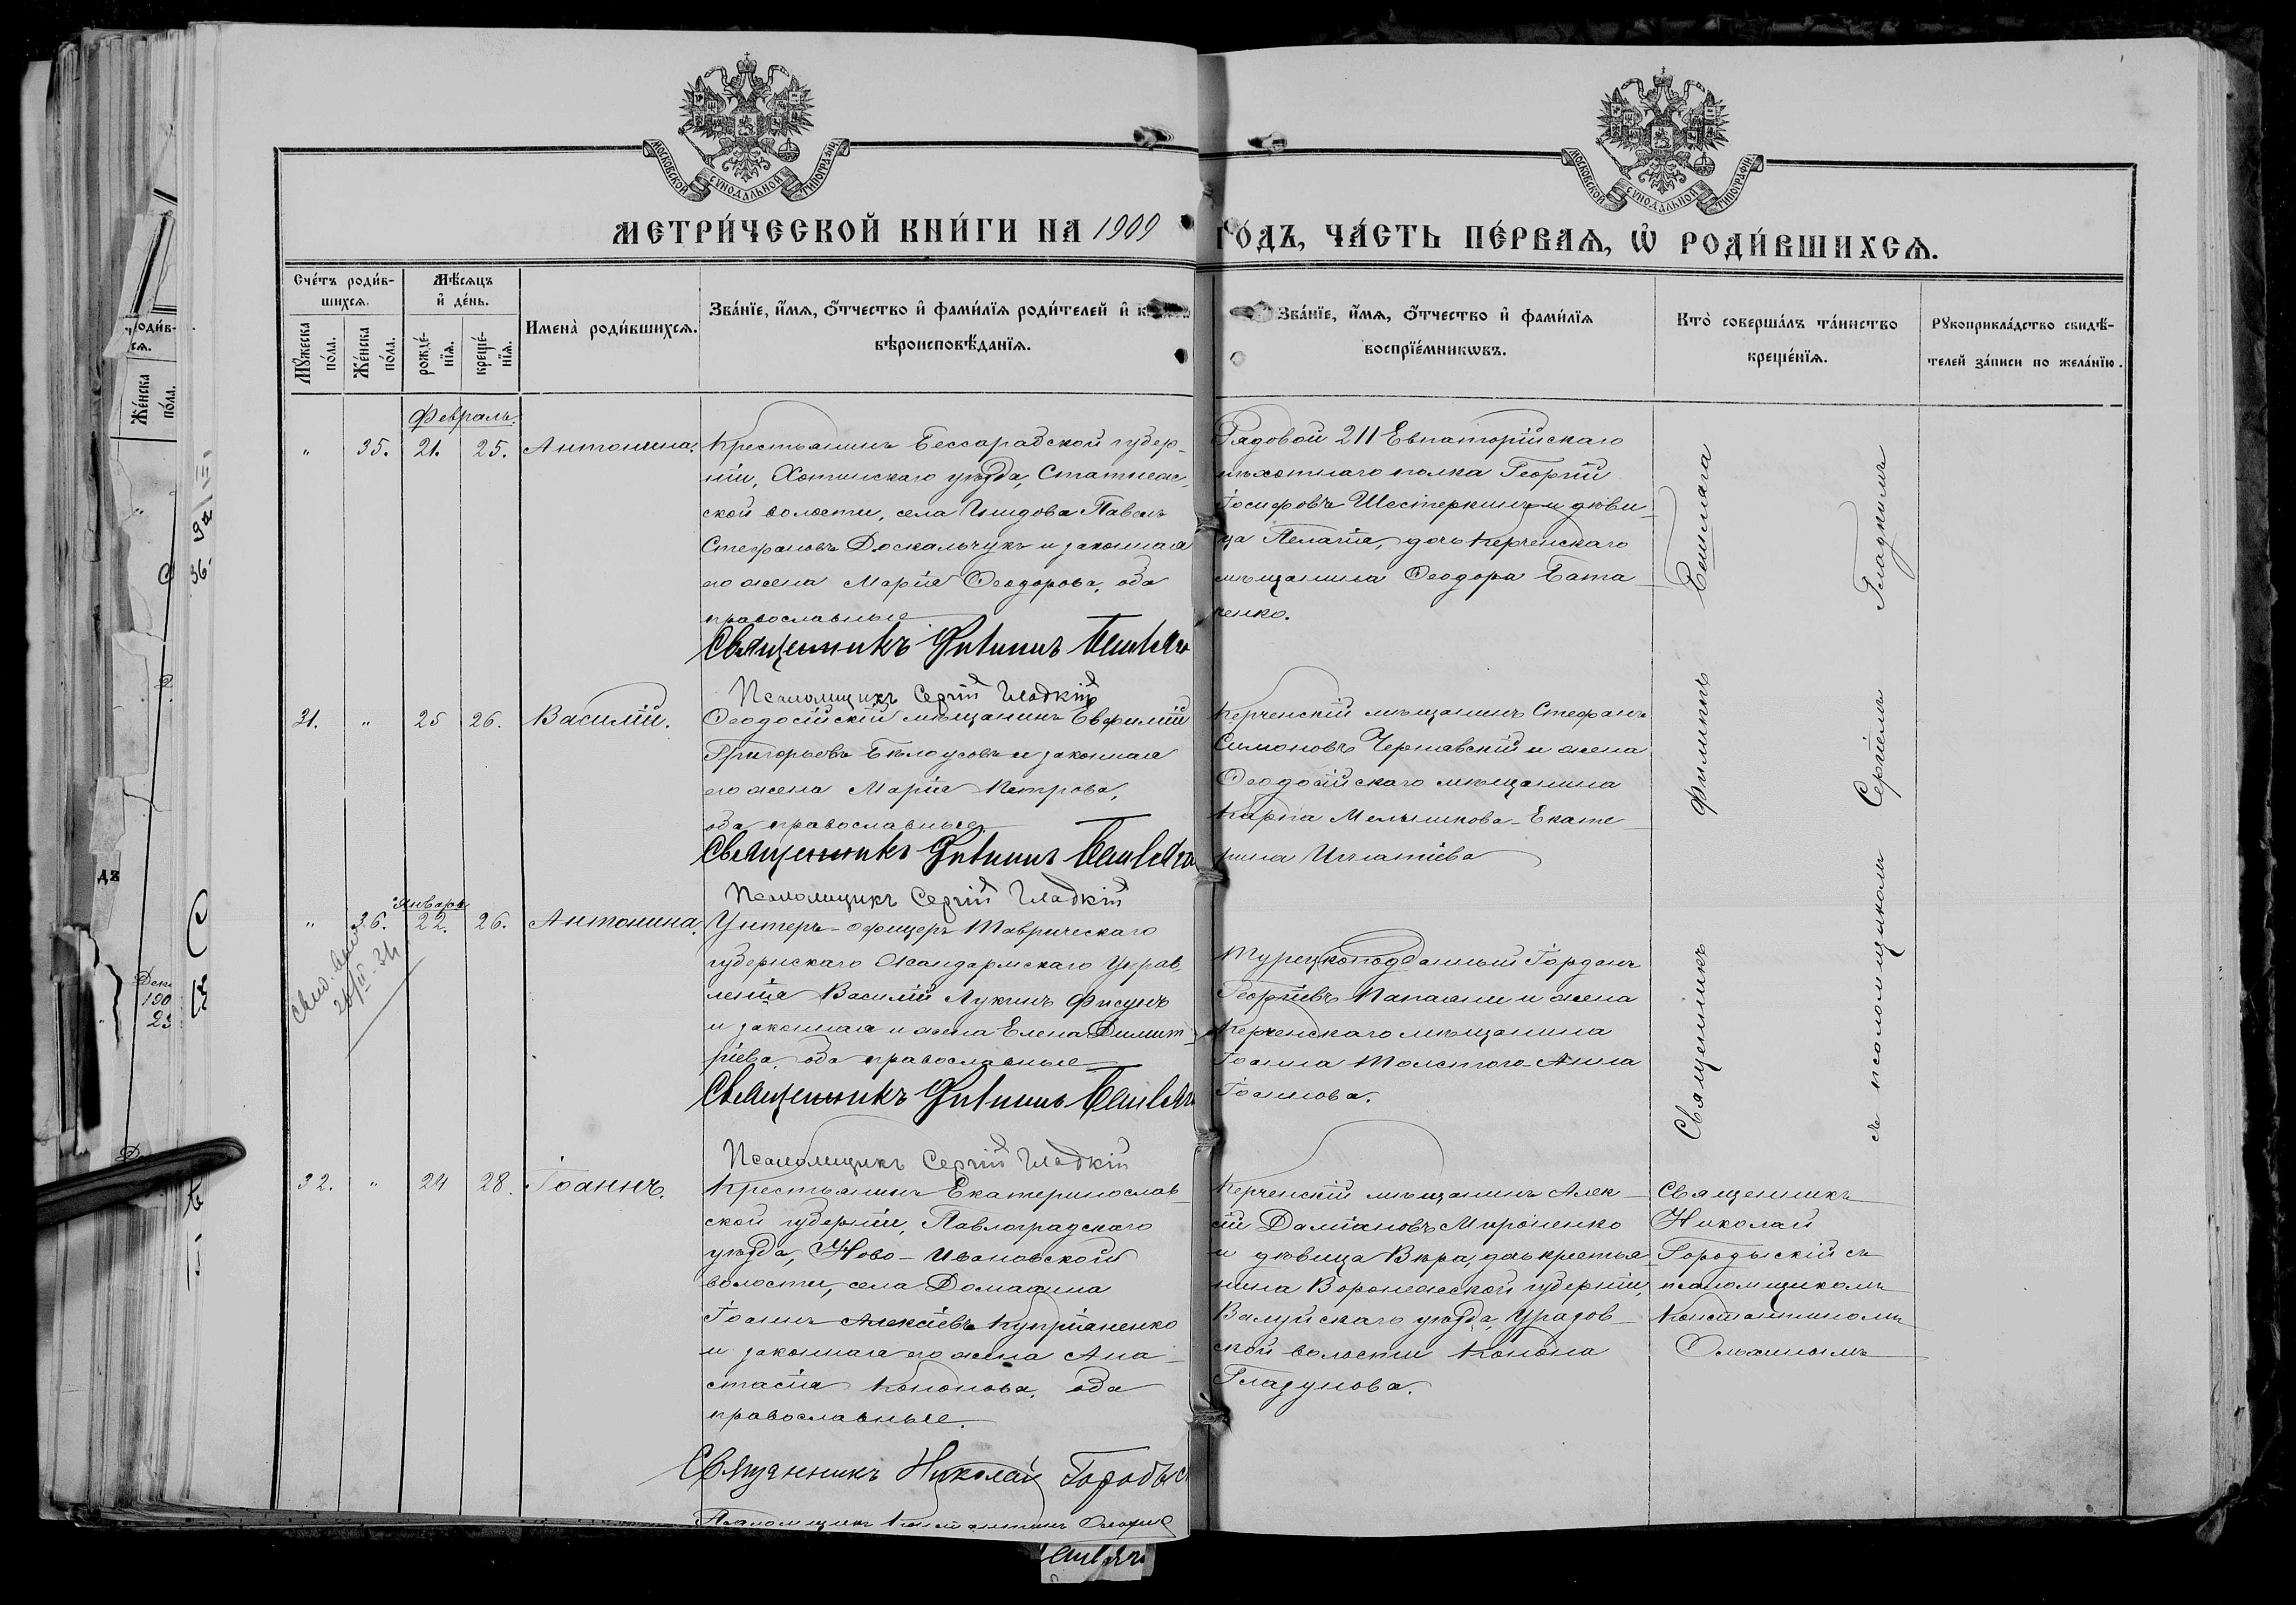 МОСКОВСКОЙ СѴНОДАЛЬНОЙ ТИПОГРАФІИ
МОСКОВСКОЙ СѴНОДАЛЬНОЙ ТИПОГРАФІИ
МЕТРИ́ЧЕСКОЙ КНИ́ГИ НА 1909 ГО́ДЪ, ЧА́СТЬ ПЕ́РВАѦ, Ѡ҆ РОДИ́ВШИХСѦ.
Сче́тъ роди́в-
шихсѧ.
Мꙋ́жеска по́ла.
Же́нска по́ла.
Мѣ́сѧцъ
и҆ де́нь.
рожде́нїѧ.
креще́нїѧ.
Имена̀ роди́вшихсѧ.
Зва́нїе, и҆́мѧ, ѻ҆́тчество и҆ фами́лїѧ роди́телей и҆
вѣроисповѣ́данїѧ.
Зва́нїе, и҆́мѧ, ѻ҆́тчество и҆ фами́лїѧ
воспрїе́мникѡвъ.
Кто̀ соверша́лъ та́инство
креще́нїѧ.
Рꙋкоприкла́дство свидѣ́-
телей за́писи по жела́нїю.
Февраль.
" 35. 21. 25. Антонина.
Крестьянинъ Бессарабской губер-
ніи, Хотинскаго уѣзда,
ской волости, села Павелъ
Стефановъ Доскальчукъ и законная
его жена Марія Ѳеодорова, оба
православные
Священникъ Филиппъ
Псаломщикъ Сергій Гладкій
Рядовой 211 Евпаторійскаго
пѣхотнаго полка Георгій
Іосифовъ Шестеркинъ и дѣви-
ца Пелагія, дочь Керченскаго
мѣщанина Ѳеодора Бата-
ченко.
31. " 25 26. Василій.
Ѳеодосійскій мѣщанинъ Евфимій
Григорьевъ Бѣлоусовъ и законная
его жена Марія Петрова,
оба православные.
Священникъ Филиппъ
Псаломщикъ Сергій Гладкій
Керченскій мѣщанинъ Стефанъ
Симоновъ Чернавскій и жена
Ѳеодосійскаго мѣщанина
Карпа Мельникова Екате-
рина Игнатіева
Январь
" 36. 22. 26. Антонина.
Унтеръ-офицеръ Таврическаго
губернскаго Жандармскаго Управ-
ленія Василій Лукинъ Фисунъ
и законная жена Елена Димит-
ріева, оба православные
Священникъ Филиппъ
Псаломщикъ Сергій Гладкій
Турецкоподданный Іорданъ
Георгіевъ и жена
Керченскаго мѣщанина
Іоанна Толстого Анна
Іоаннова.
Священникъ Филиппъ
съ псаломщикомъ Сергіемъ Гладкимъ
32. " 24 28. Іоаннъ.
Крестьянинъ Екатеринослав-
ской губерніи, Павлоградскаго
уѣзда, Ново-Ивановской
волости, села Домахина
Іоаннъ Алексіевъ Купріаненко
и законная его жена Ана-
стасія Кононова, оба
православные.
Священникъ Николай
Псаломщикъ Константинъ
Керченскій мѣщанинъ Алек-
сій Даміановъ Мироненко
и дѣвица Вѣра, дочь крестья-
нина Воронежской губерніи,
Валуйскаго уѣзда, Уразов-
ской волости Конона
Глазунова.
Священникъ
Николай
Городыскій съ
псаломщикомъ
Константиномъ